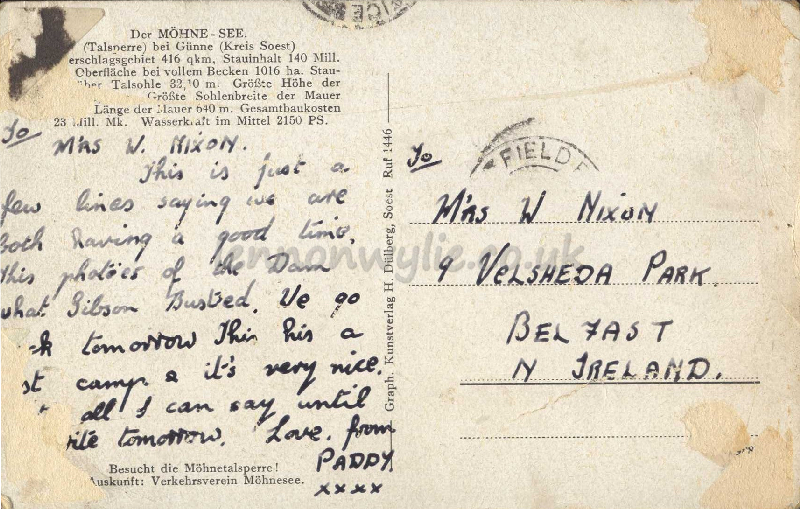 Der MÖHNE-SEE.
(Talsperre) bei Günne (Kreis Soest)
erschlagsgebiet 416 qkm, Stauinhalt 140 Mill.
Oberfläche bei vollem Becken 1016 ha. Stau-
über Talsohle 32,10 m. Größte Höhe der
Größte Sohlenbreite der Mauer
Länge der Mauer 640 m. Gesamtbaukosten
23 Mill. Mk. Wasserkraft im Mittel 2150 PS.
To
Mrs W. Nixon.
This is just a
few lines saying we are
both having a good time.
This photo's of the Dam
what Gibson Busted. We go
tomorrow This his a
camp & it's very nice.
all I can say until
rite tomorrow. Love. from
PADDY
xxxx
Besucht die Möhnetalsperre!
Auskunft: Verkehrsverein Möhnesee.
Graph. Kunstverlag H. Dülberg, Soest Ruf 1446
FIELD
To
Mrs W Nixon
9 VELSHEDA PARK.
BELFAST
N IRELAND.
ennonwylie.co.uk